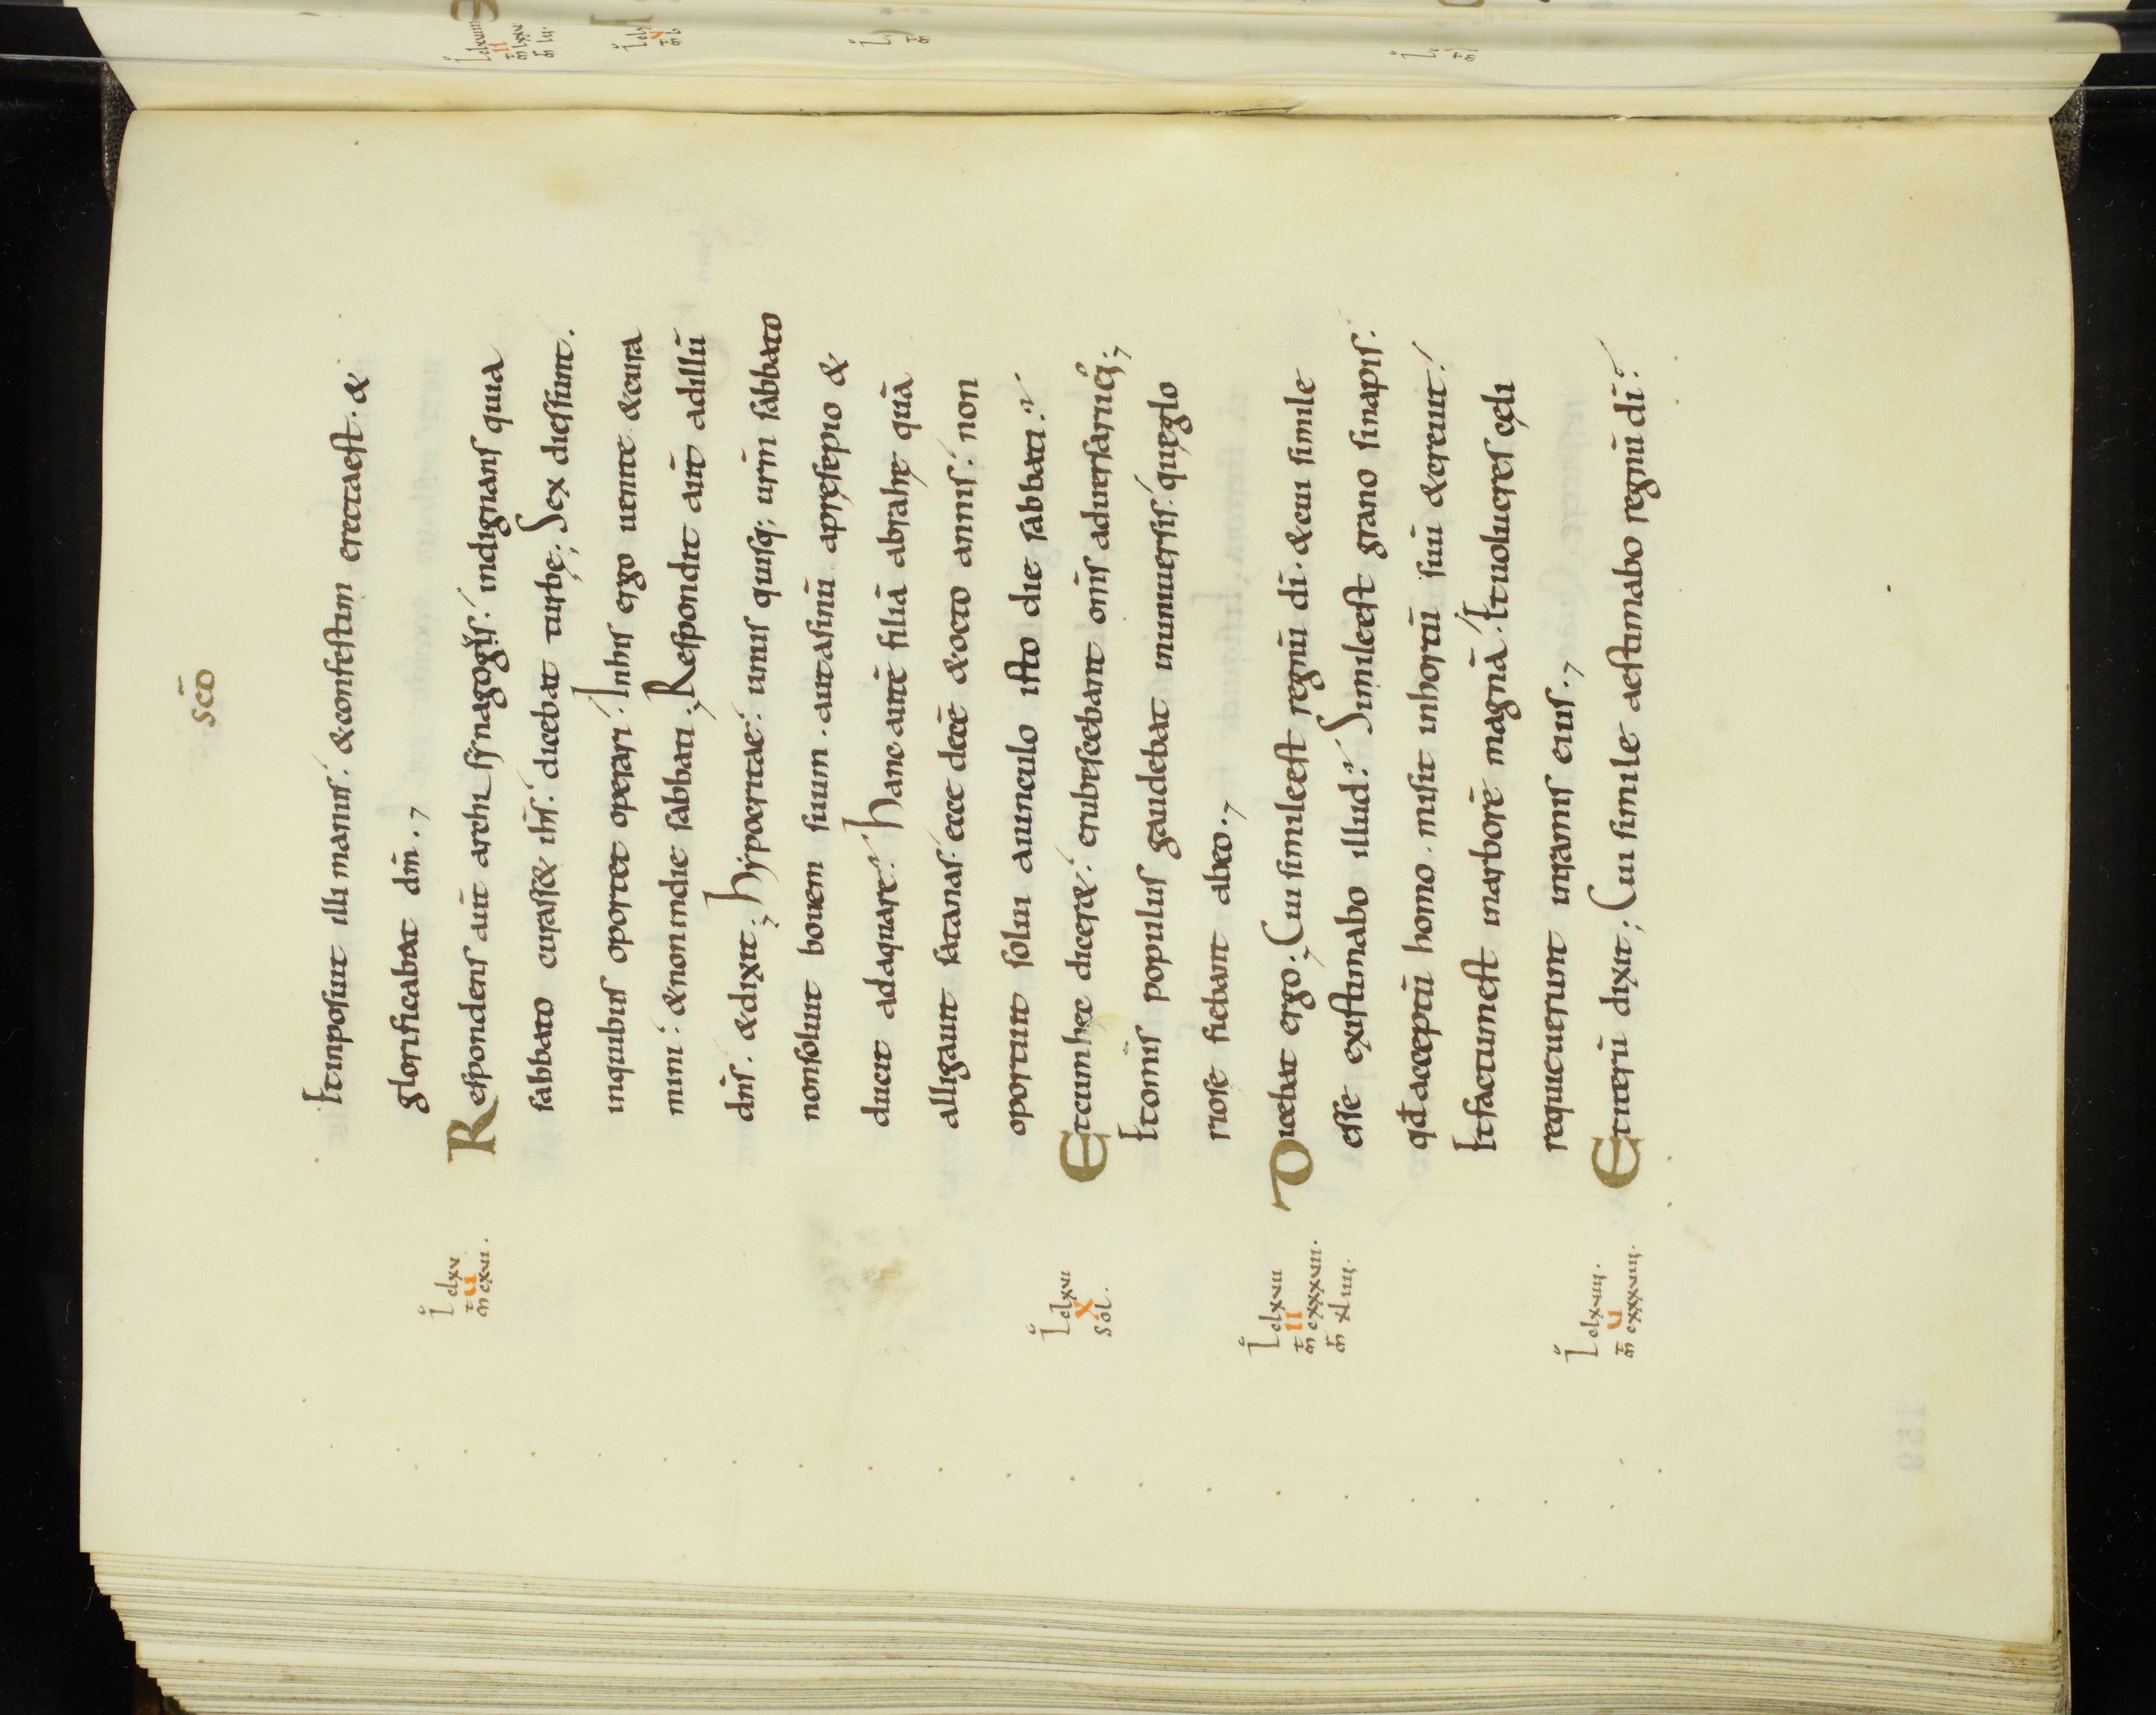 sc̄o
Et inposuit illi manus. & confestim erecta est. &
glorificabat dm̄.
Respondens aut̄ archi synagogus. indignans quia
sabbato curass& ihs̄. dicebat turbę; Sex dies sunt.
in quibus oportet operari. In his ergo uenite & cura
mini. & non in die sabbati; Respondit aut̄ ad illū
dn̄s. & dixit; hẏpocritae. unus quisq; urm̄ sabbato
non soluit bouem suum. aut asinū a pręsepio &
ducit adaquare. hanc autē filiā abrahę quā
alligauit satanas. ecce decē & octo annis. non
oportuit solui a uinculo isto die sabbati.
Et cum hec dicer&. erubescebant om̄s aduersarii ei;
Et om̄is populus gaudebat in uniuersis. quę glo
riose fiebant ab eo.
Dicebat ergo; Cui simile est regnū dī. & cui simile
esse existimabo illud. Simile est grano sinapis.
qd acceptū homo. misit in hortū suū & creuit.
Et factum est in arborē magnā. Et uolucres cęli
requieuerunt in ramis eius.
Et iterū dixit; Cui simile aestimabo regnū dī.
L clxv
u
m̄ cxvii.
L clxvi
X
sol.
L clxvii
II
m̄ cxxxvii.
m̄ xliiii.
L clxviii.
U
m̄ cxxxviii.